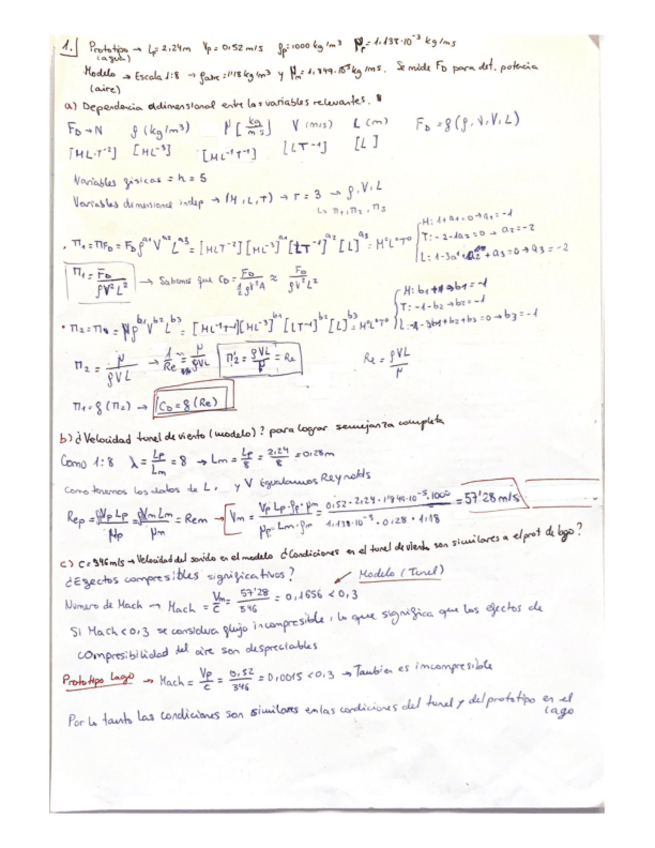 1. Prototipo → Lp = 2,24m Vp = 0,52 m/s ρp = 1000 kg/m³ μp = 1.138·10⁻³ kg/ms
(agua)
Modelo → Escala 1:8 → ρaire = 1'18 kg/m³ y μm = 1,849·10⁻⁵ kg/ms. Se mide FD para det. potencia
(aire)
a) Dependencia adimensional entre las variables relevantes.
FD → N ρ (kg/m³) μ [kg/m·s] V (m/s) L (m) FD = f(ρ, V, V, L)
[MLT⁻²] [ML⁻³] [ML⁻¹T⁻¹] [LT⁻¹] [L]
Variables físicas = n = 5
Variables dimensione indep → (M, L, T) → r = 3 → ρ, V, L
↳ π1, π2, π3
· π1 = πFD = FD ρ^a1 V^a2 L^a3 = [MLT⁻²][ML⁻³]^a1 [LT⁻¹]^a2 [L]^a3 = M⁰L⁰T⁰
M: 1+a1 = 0 → a1 = -1
T: -2-1a2 = 0 → a2 = -2
L: 1-3a1+a2+a3 = 0 → a3 = -2
π1 = FD/ρV²L² → Sabemos que CD = FD/½ρV²A ≈ FD/ρV²L²
· π2 = πμ = μρ^b1 V^b2 L^b3 = [ML⁻¹T⁻¹][ML⁻³]^b1 [LT⁻¹]^b2 [L]^b3 = M⁰L⁰T⁰
M: b1+1 → b1 = -1
T: -1-b2 → b2 = -1
L: -1-3b1+b2+b3 = 0 → b3 = -1
π2 = μ/ρVL → 1/Re = μ/ρVL π2' = ρVL/μ = Re Re = ρVL/μ
π1 = f(π2) → CD = f(Re)
b) ¿Velocidad tunel de viento (modelo)? para lograr semejanza completa
Como 1:8 λ = Lp/Lm = 8 → Lm = Lp/8 = 2,24/8 = 0,28m
Como tenemos los datos de L, y V Igualamos Reynolds
Rep = ρVp Lp/μp = ρVm Lm/μm = Rem → Vm = Vp·Lp·ρp·μm/μp·Lm·ρm = 0,52·2,24·1'849·10⁻⁵·1000/1.138·10⁻³·0,28·1,18 = 57'28 m/s
c) c = 346m/s → Velocidad del sonido en el modelo ¿Condiciones en el tunel de viento son similares a el prot de lago?
¿Efectos compresibles significativos? Modelo (Tunel)
Número de Mach → Mach = Vm/c = 57'28/346 = 0,1656 < 0,3
Si Mach < 0,3 se considera flujo incompresible, lo que significa que los efectos de
compresibilidad del aire son despreciables
Prototipo Lago → Mach = Vp/c = 0,52/346 = 0,0015 < 0,3 → Tambien es incompresible
Por lo tanto las condiciones son similares en las condiciones del tunel y del prototipo en el
lago